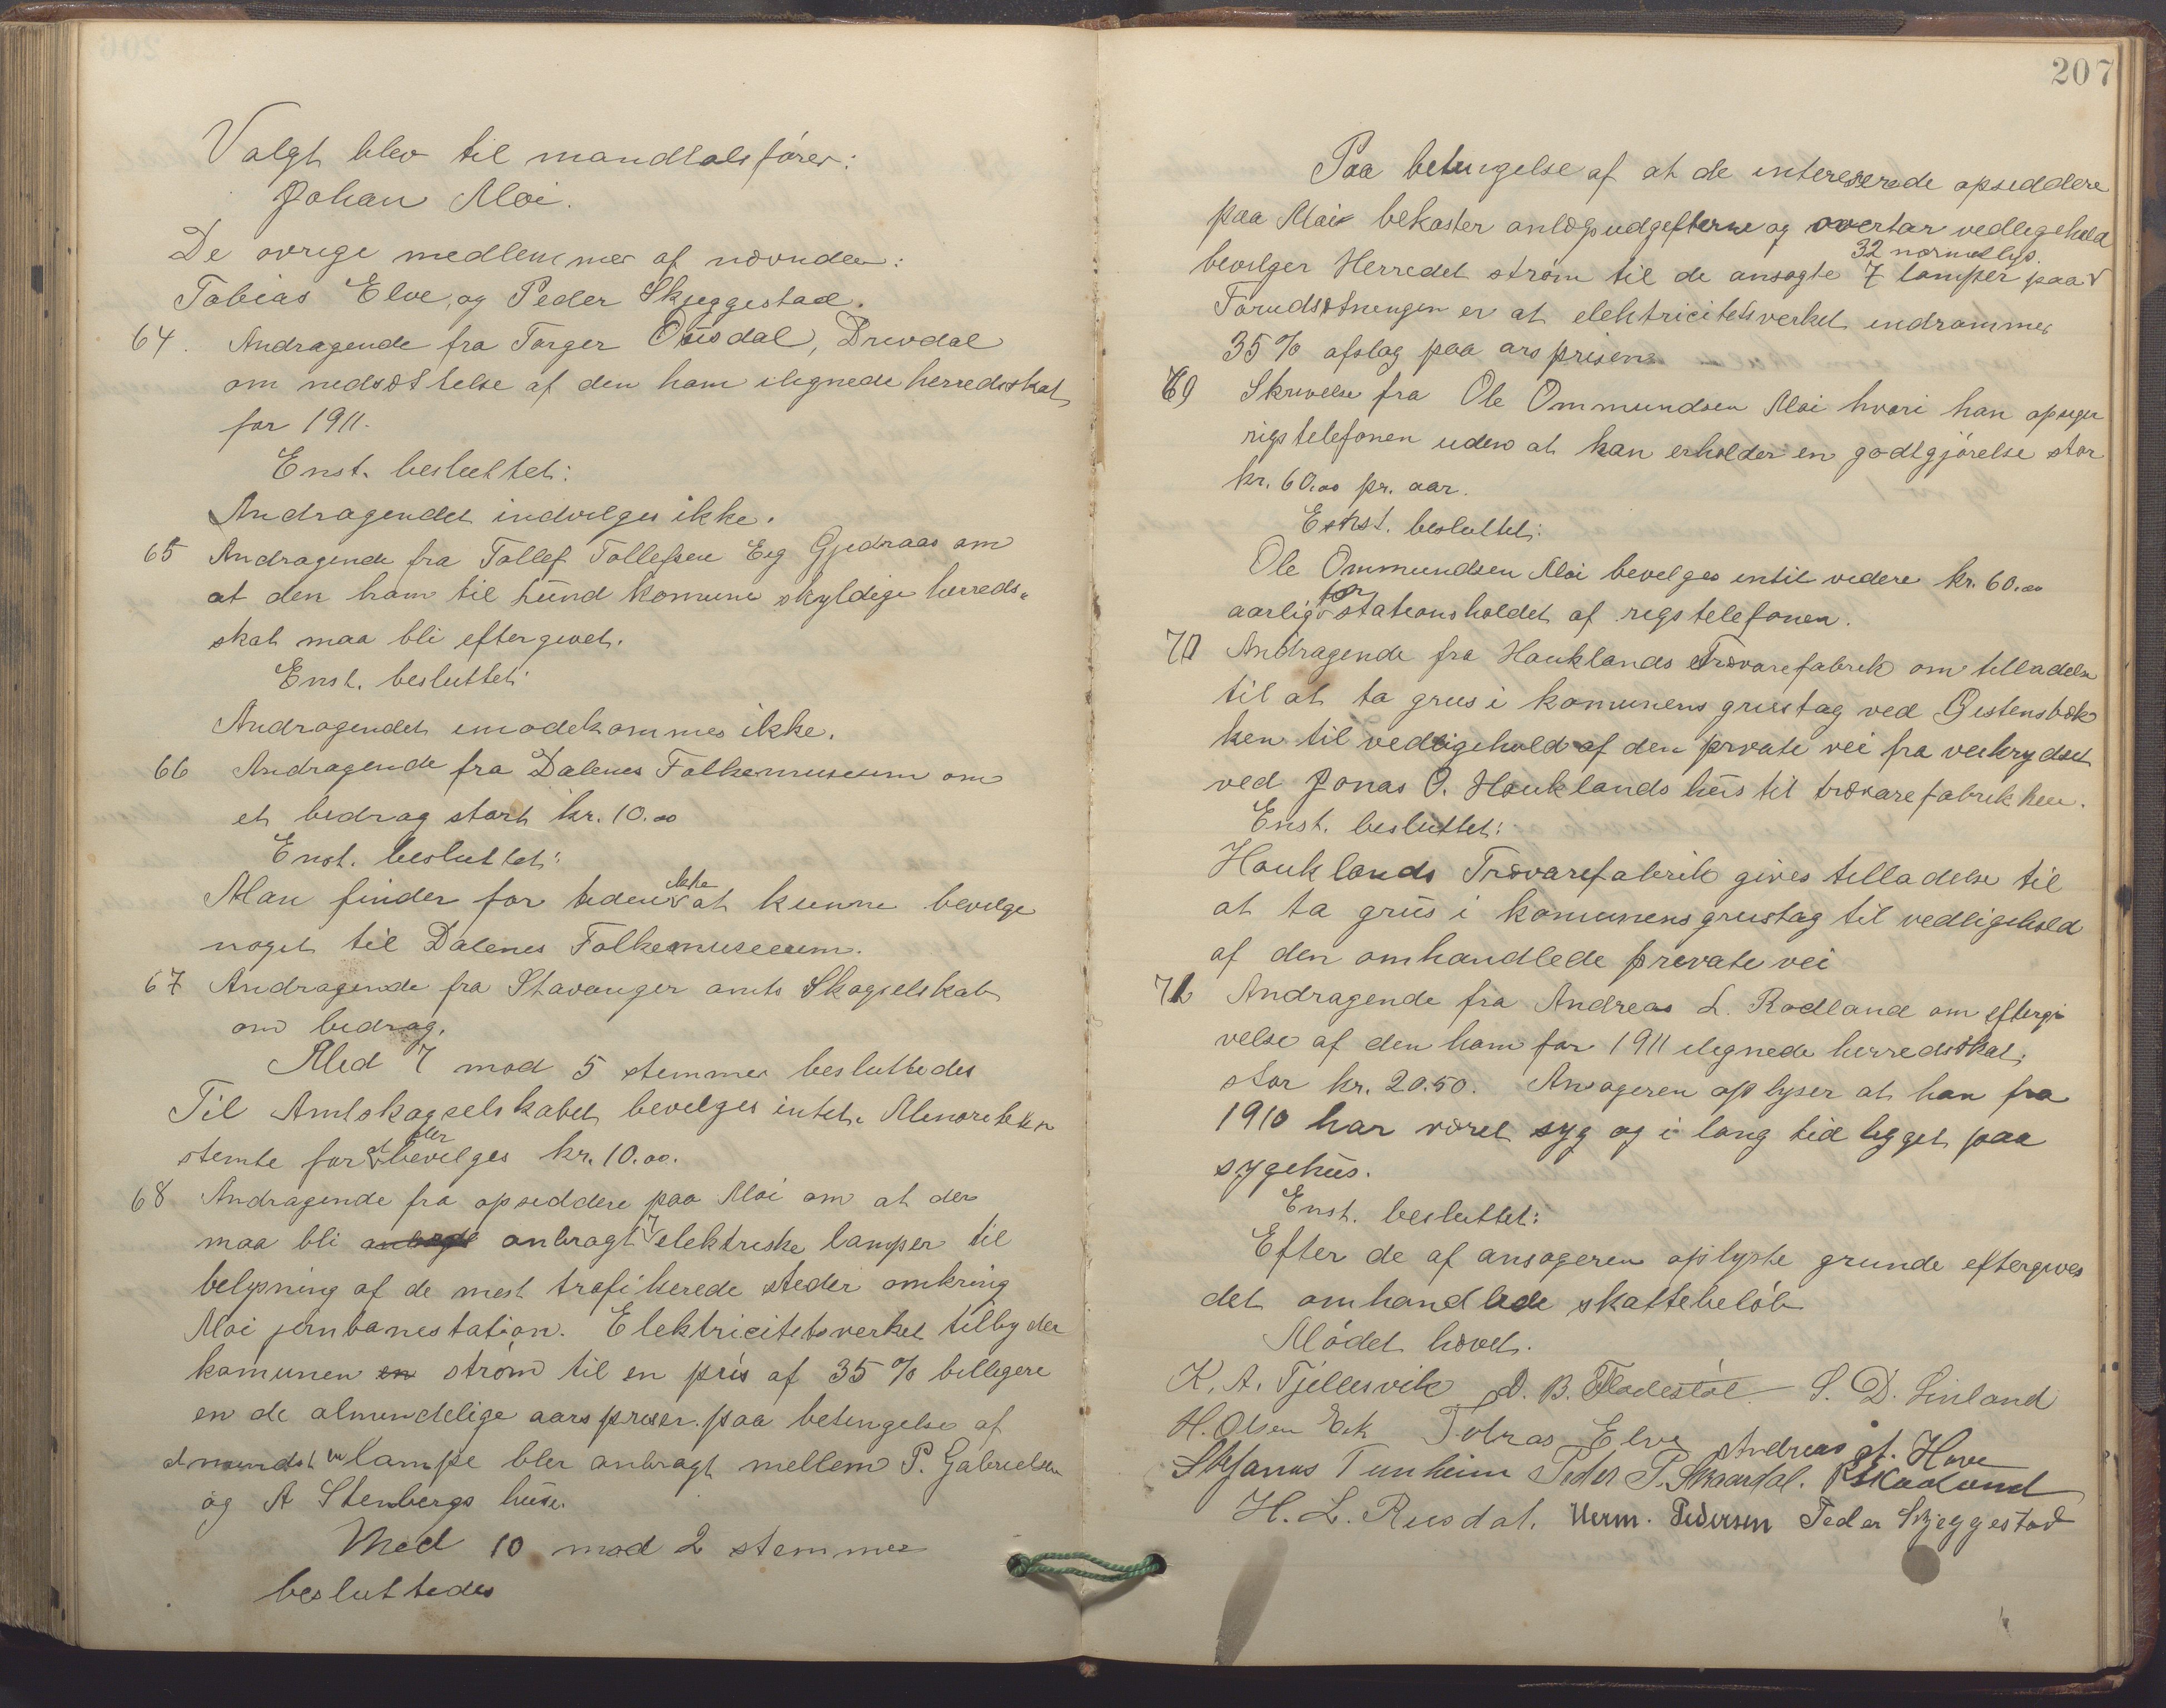 Valgt blev til mandtalsfører:
Johan Moi.
De øvrige medlemmer af nævnden:
Tobias Elve, og Peder Skjeggestad.
64. Andragende fra Torger Ousdal, Drivdal
om nedsættelse af den ham ilignede herredsskat
for 1911.
Enst. besluttet:
Andragendet indvilges ikke.
65 Andragende fra Tollef Tollefsen Eeg Gjedraas om
at den ham til Lund komune skyldige herreds-
skat maa bli eftergivet.
Enst. besluttet:
Andragendet imødekommes ikke.
66 Andragende fra Dalenes Folkemuseum om
et bidrag stort kr. 10.00
Enst. besluttet:
Man finder for tiden ikke at kunne bevilge
noget til Dalenes Folkemuseum.
67 Andragende fra Stavanger amts Skogselskab
om bidrag.
Med 7 mod 5 stemmer besluttedes
Til Amtskogselskabet bevilges intet. Minoriteten
stemte for at der bevilges kr. 10.00.
68 Andragende fra opsiddere paa Moi om at der
maa bli anbragt anbragt 7 elektriske lamper til
belysning af de mest trafikerede steder omkring
Moi jernbanestation. Elektricitetsverket tilbyder
komunen en strøm til en pris af 35 % billigere
en de almindelige aarspriser paa betingelse af
at mindst en lampe blir anbragt mellem P. Gabrielsen
og A Stenbergs huse.
Med 10 mod 2 stemmer
besluttedes
207
Paa betingelse af at de interesserede opsiddere
paa Moi bekoster anlægsudgifterne og overtar vedligehold
32 normallys.
bevilger Herredet strøm til de ansøgte 7 lamper paa
Forudsætningen er at elektricitetsverket indrømmer
35 % afslag paa årsprisen
69 Skrivelse fra Ole Ommundsen Moi hvori han opsiger
rigstelefonen uden at han erholder en godtgjørelse stor
kr. 60.00 pr. aar.
Enst. besluttet:
Ole Ommundsen Moi bevilges intil videre kr. 60.00
aarlig for stationsholdet af rigstelefonen.
70 Andragende fra Hauklands Trævarefabrik om tilladelse
til at ta grus i komunens grustag ved Øistensbæk
ken til vedligehold af den private vei fra veikrydset
ved Jonas O. Hauklands hus til trævarefabrikken.
Enst. besluttet:
Hauklands Trævarefabrik gives tilladelse til
at ta grus i komunens grustag til vedligehold
af den omhandlede private vei
71 Andragende fra Andreas L. Rødland om eftergi
velse af den ham for 1911 ilignede herredsskat,
stor kr. 20.50. Ansøgeren oplyser at han fra
1910 har været syg og i lang tid ligget paa
sygehus.
Enst. besluttet:
Efter de af ansøgeren oplyste grunde eftergives
det omhandlede skattebeløb
Mødet hævet.
K. A. Tjellesvik O. B. Fladestøl S. D. Linland
H. Olsen Eik Tobias Elve Andreas At. Hove
Stefanus Tunheim Peder P. Skaardal. Skadund
H. L. Rusdal. Herm. Pedersen Peder Skjeggestad